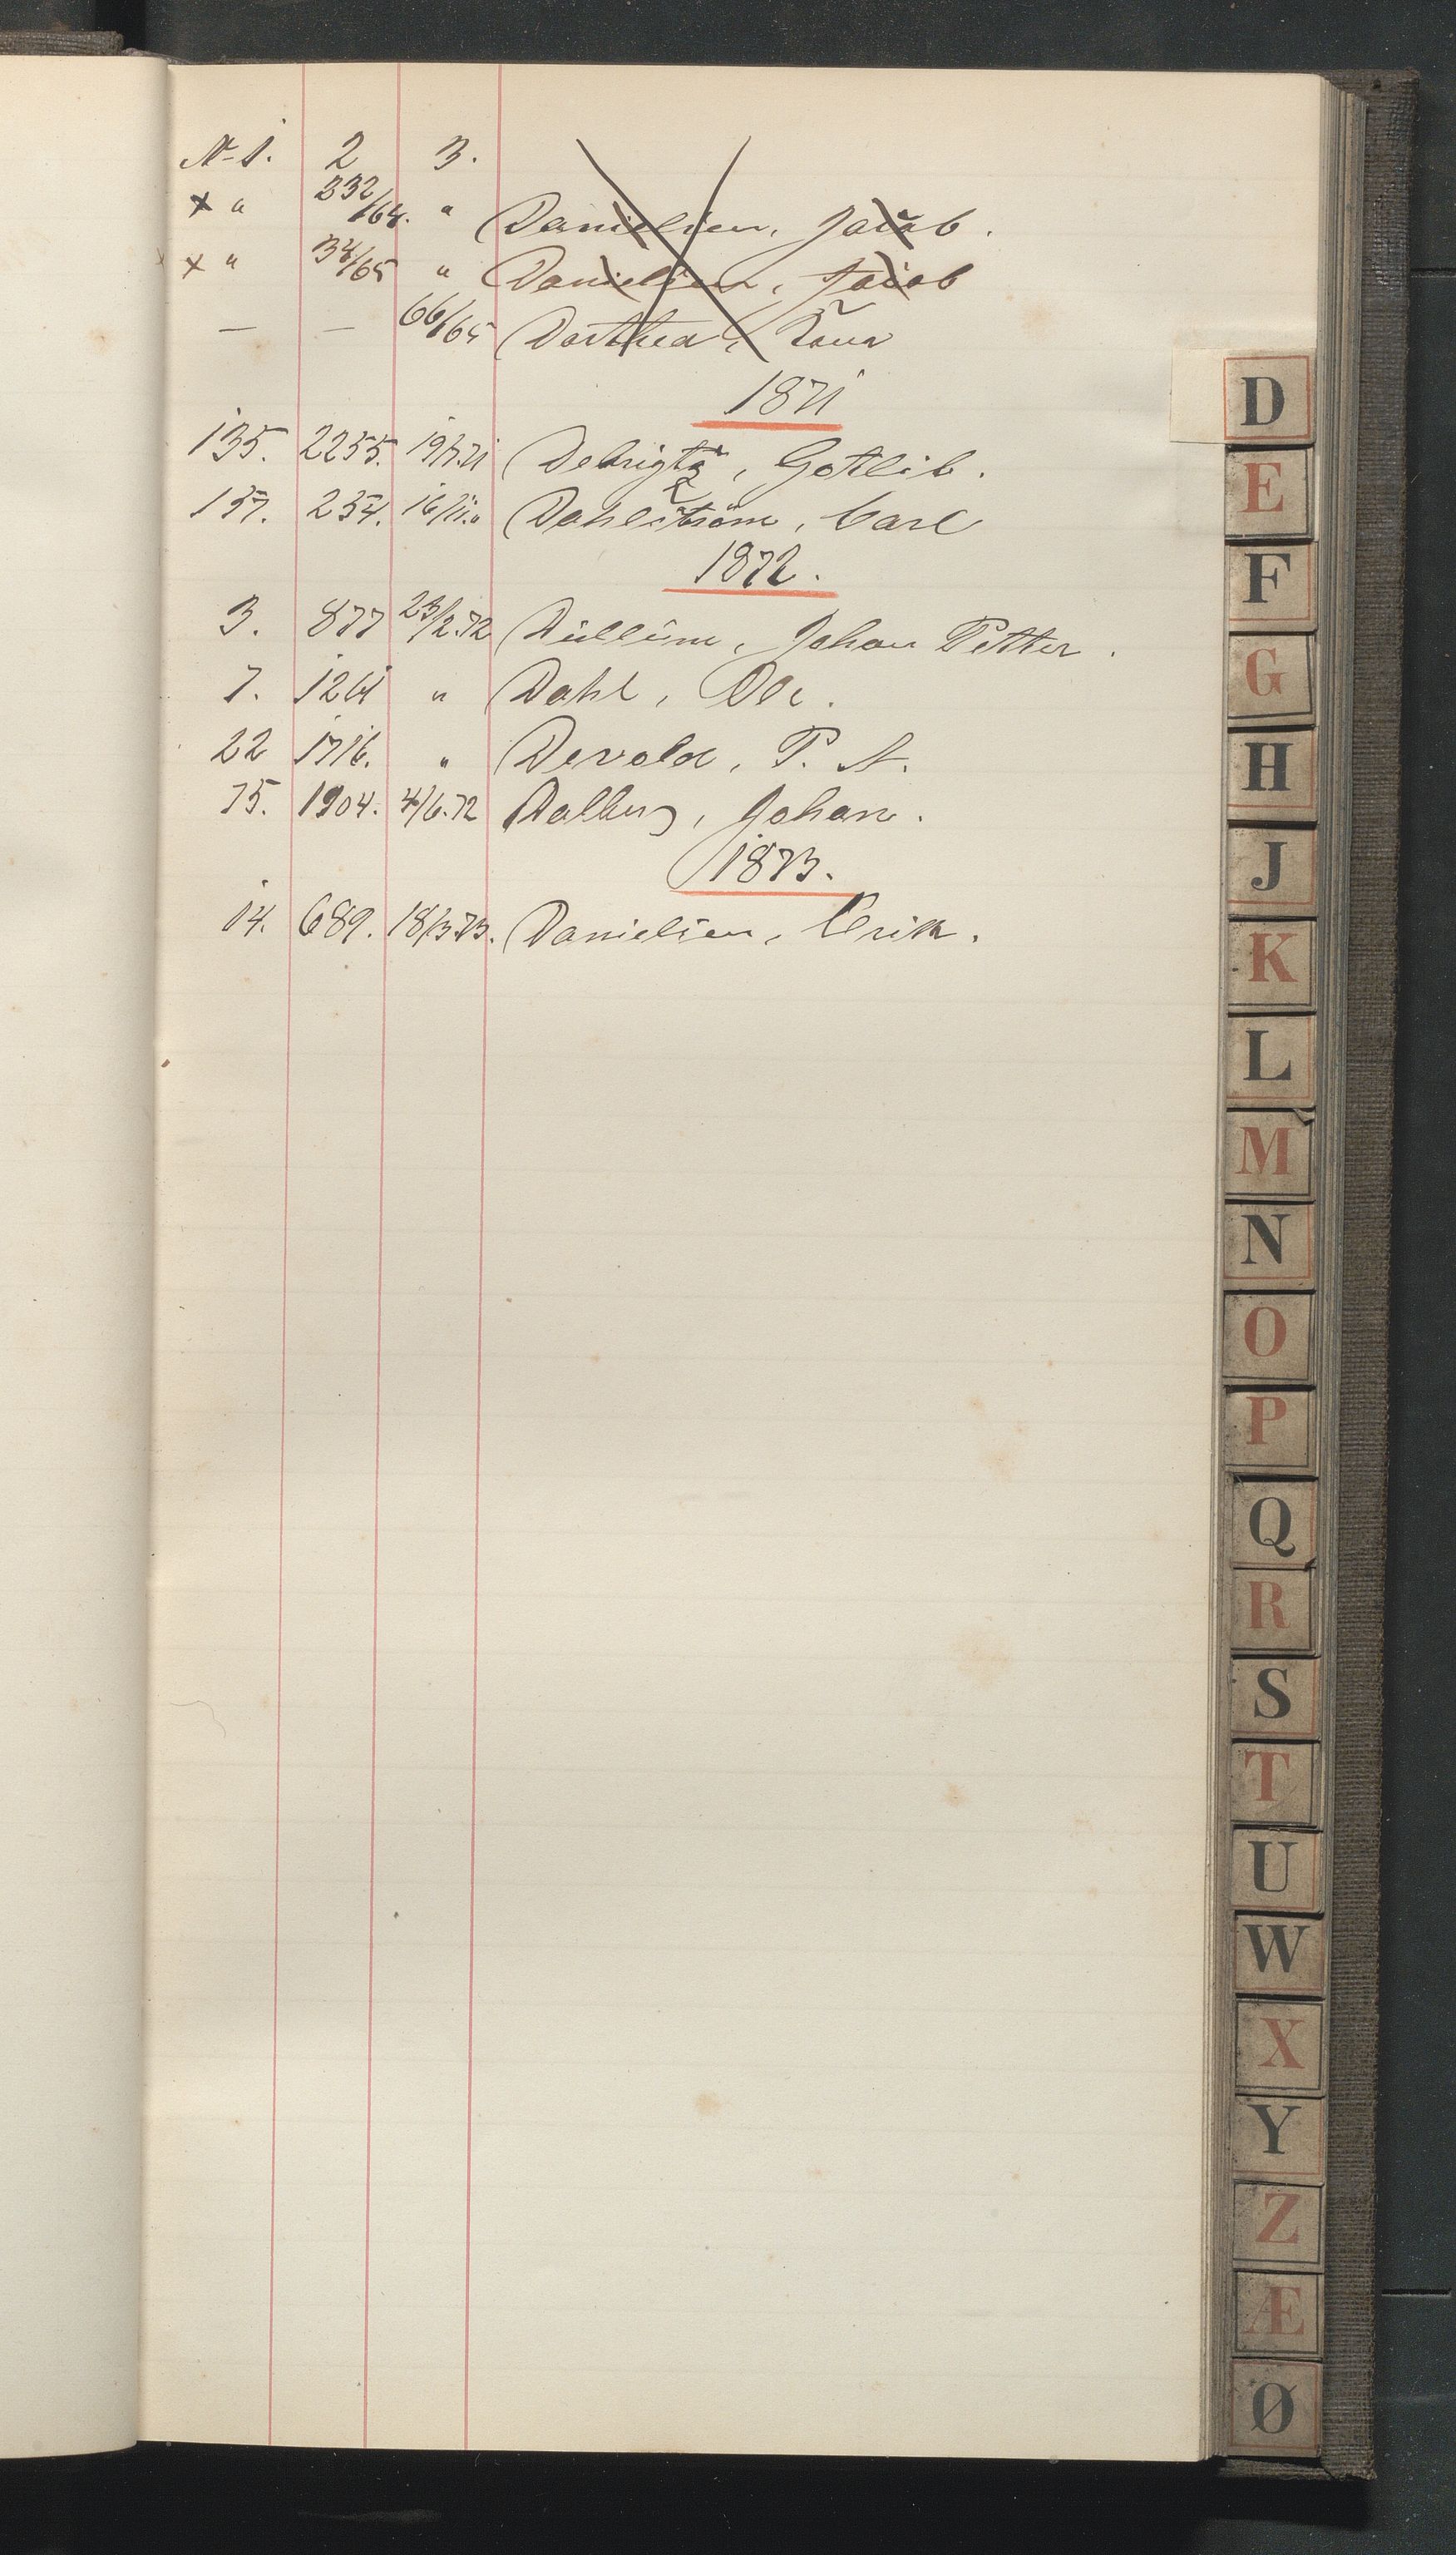 N-1. 2 3.
× " 232/64. " Danielsen, Jacob.
× " 34/65 " Danielsen, Jacob
— — 66/65 Dorthea, Kona
1871
135. 2255. 19/7.71 Debrigtz, Gotlib.
137. 254. 16/11." Dahlström, Carl
1872.
3. 877 23/2.72 Johan Petter.
7. 1261 " Dahl, Ole.
22 1716. " Devold, P. A.
75. 1904. 4/6.72 Dalberg, Johan.
1873.
14. 689. 18/3.73. Danielsen, Erik.
D
E
F
G
H
J
K
L
M
N
O
P
Q
R
S
T
U
W
X
Y
Z
Æ
Ø